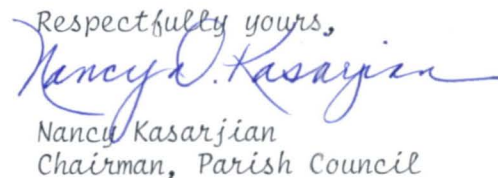 Respectfully yours,
Nancy D. Kasarjian
Nancy Kasarjian
Chairman, Parish Council